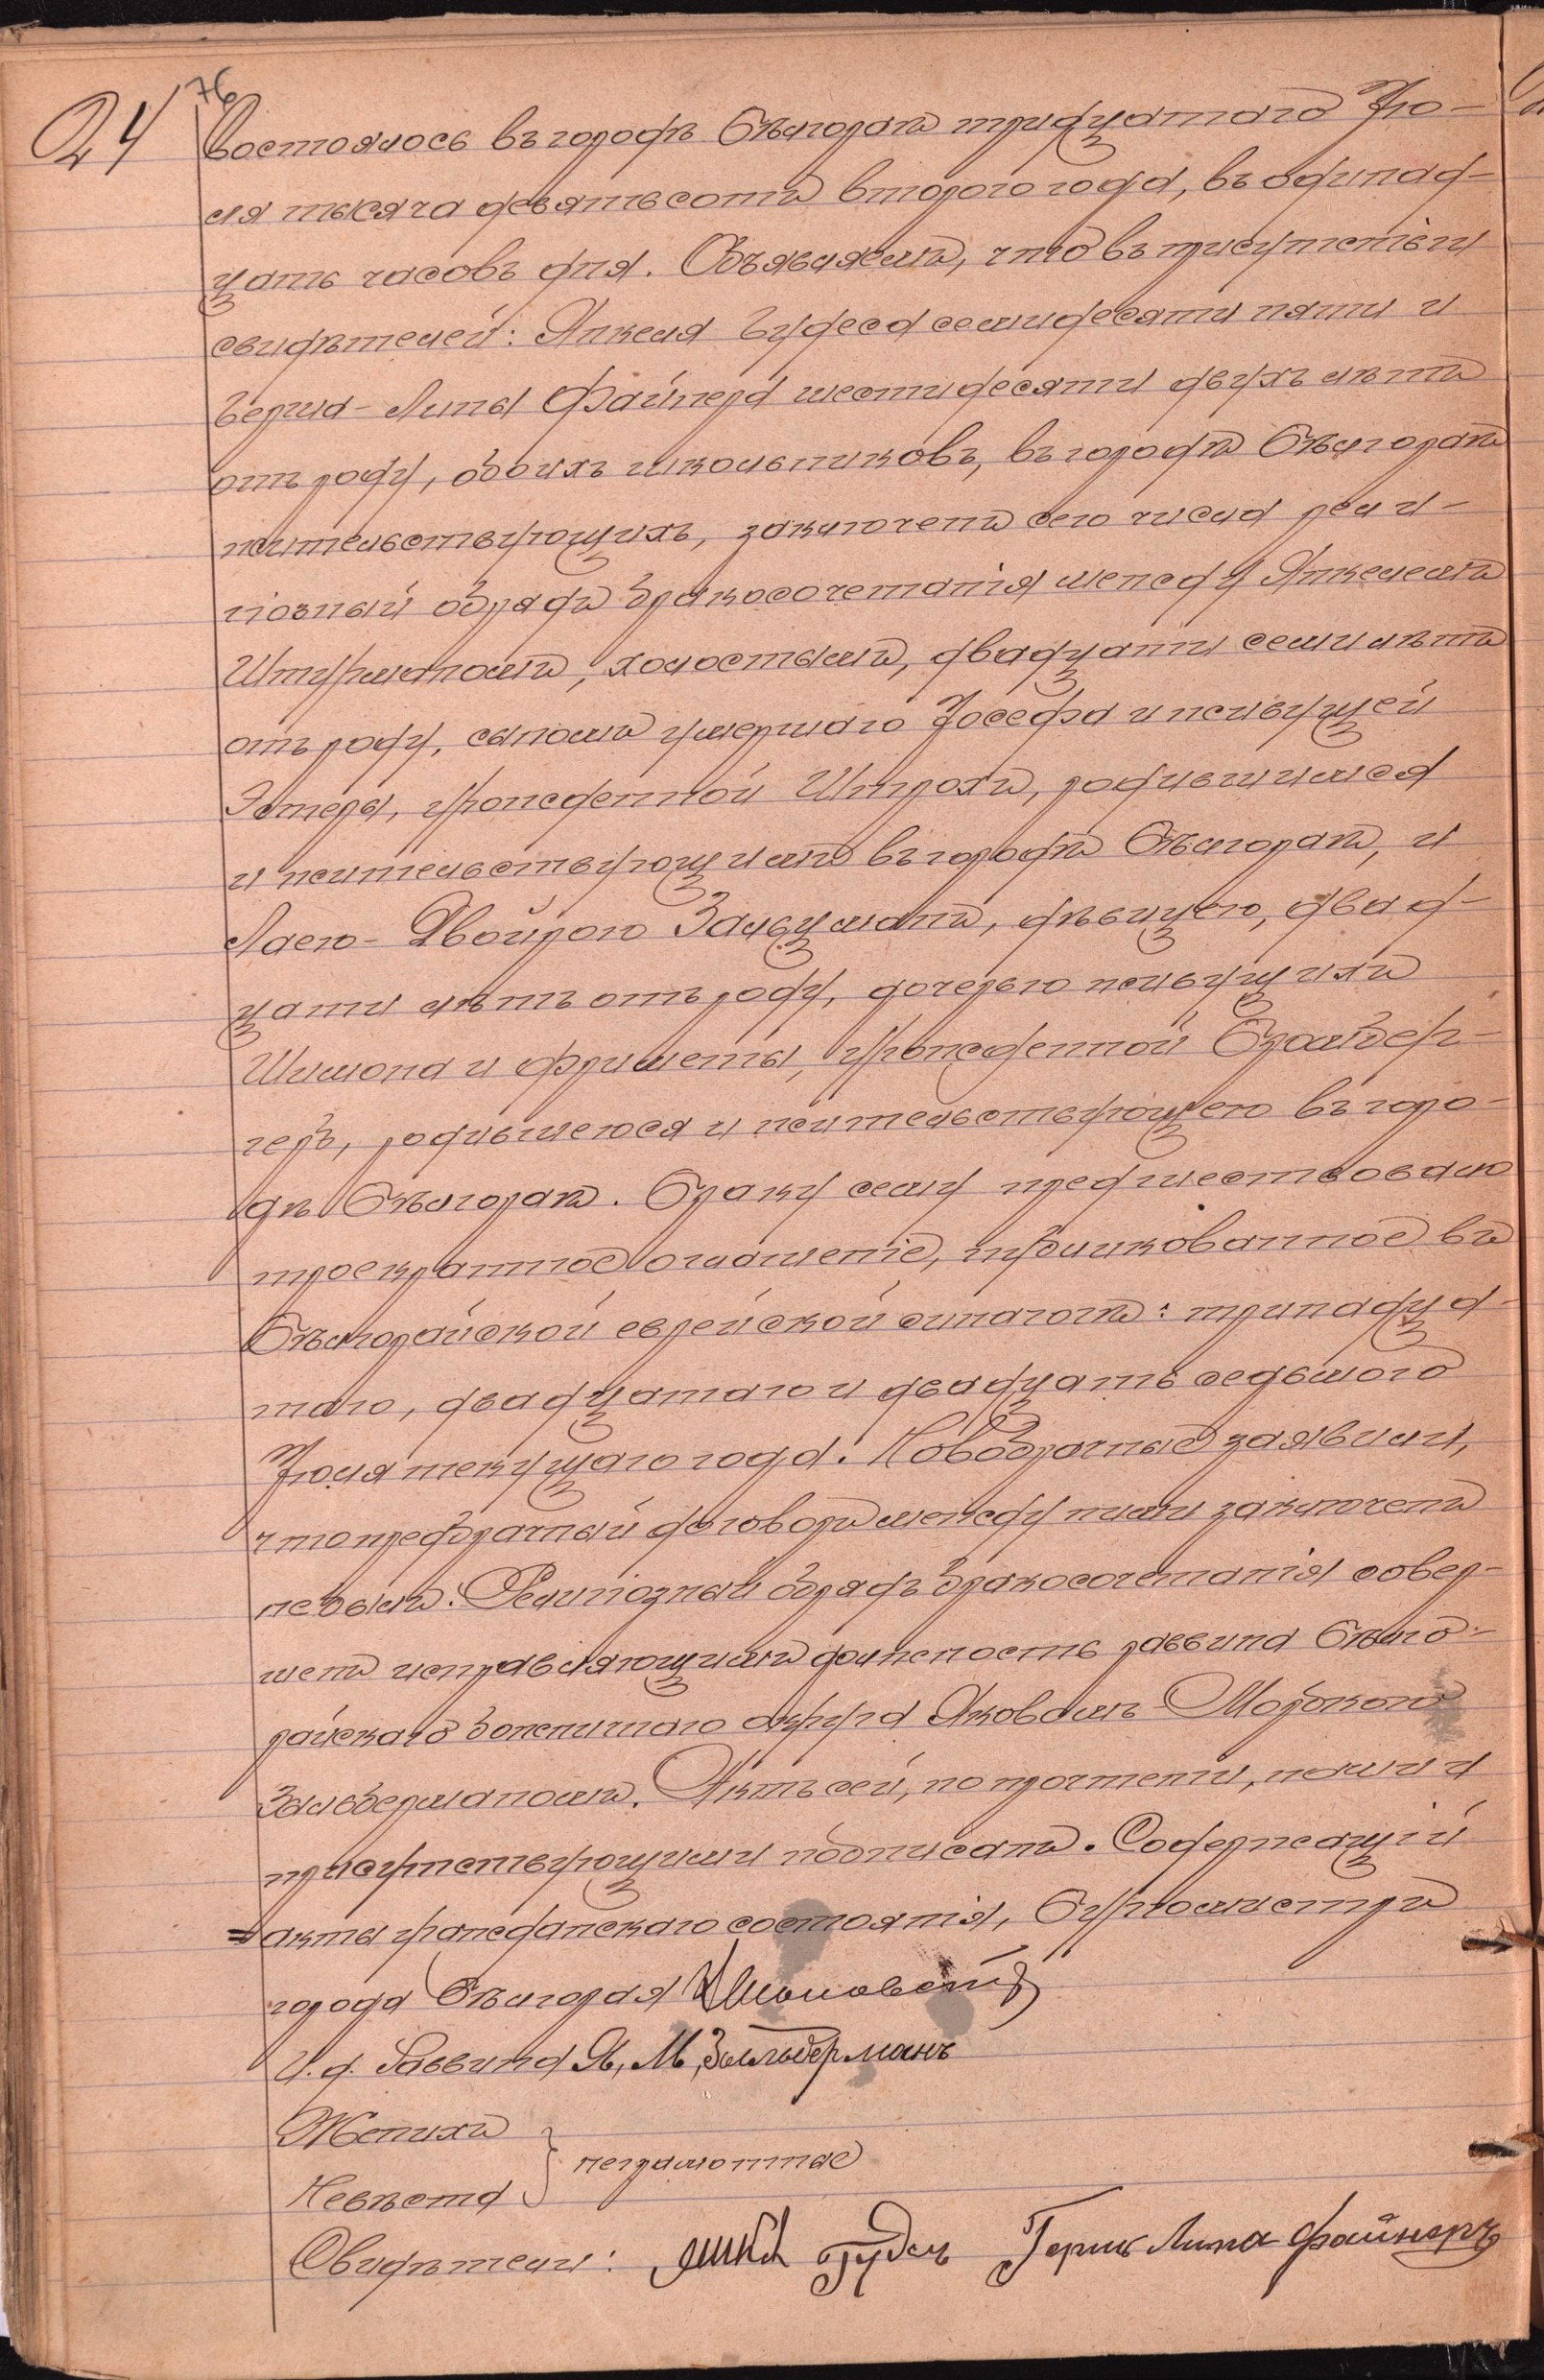 24
76
Состоялось въ городѣ Бѣлгораѣ тридцатаго Ію-
ля тысяча девятьсотъ второго года, въ одинад-
цать часовъ дня. Объявляемъ, что въ присутствіи
свидѣтелей: Янкеля Гудеса семидесяти пяти и
Герша-Липы Файнера шестидесяти двухъ лѣтъ
отъ роду, обоихъ школьниковъ, въ городѣ Бѣлгораѣ
жительствующихъ, заключенъ сего числа рели-
гіозный обрядъ бракосочетанія между Янкелемъ
Штурманомъ, холостымъ, двадцати семи лѣтъ
отъ роду, сыномъ умершаго Іосефа и живущей
Эстеры, урожденной Штрохъ, родившимся
и жительствующимъ въ городѣ Бѣлгораѣ, и
Лаею-Двойрою Зальцманъ, дѣвицею, двад-
цати лѣтъ отъ роду, дочерью живущихъ
Шимона и Фриметы, урожденной
родившеюся и жительствующею въ горо-
дѣ Бѣлгораѣ. Браку сему предшествовало
троекратное оглашеніе, публикованное въ
Бѣлгорайской еврейской синагогѣ: тринадца-
таго, двадцатаго и двадцать седьмого
Іюля текущаго года. Новобрачные заявили,
что предбрачный договоръ между ними заключенъ
не былъ. Религіозный обрядъ бракосочетанія совер-
шенъ исправляющимъ должность раввина Бѣлго-
райскаго божничнаго округа Яковомъ-Мордкою
Зильберманомъ. Актъ сей, по прочтеніи, нами и
присутствующими подписанъ. Содержащій
акты гражданскаго состоянія, Бургомистръ
города Бѣлгорая
И. д. Раввина Я, М, Зильберманъ
Женихъ
неграмотные
Невѣста
Свидѣтели: Гершъ Липа Файнеръ